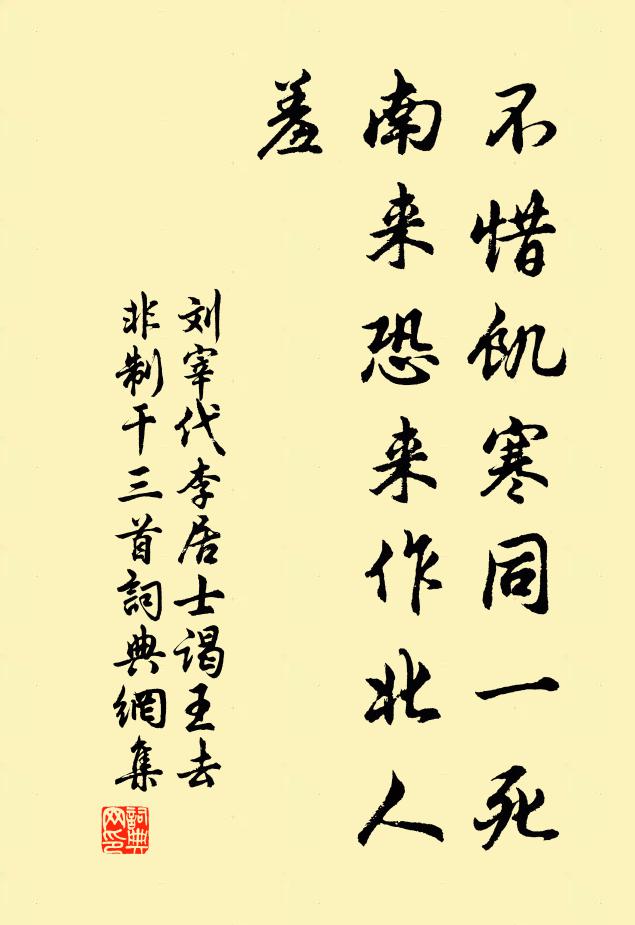 不惜飢寒同一死
南来恐来作北人
羞
刘宰代李居士谒王去
非制干三首詞典網集
詞典
网印